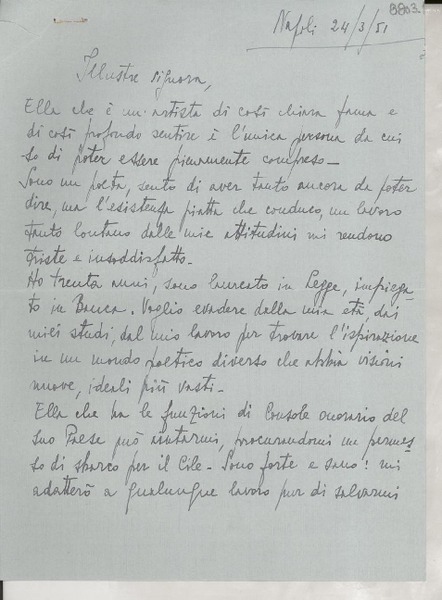 8803.
Napoli 24/3/51
Illustre signora,
Ella che è un'artista di così chiara fama e
di così profondo sentire è l'unica persona da cui
so di poter essere pienamente compreso_
Sono un poeta, sento di aver tanto ancora da poter
dire, ma l'esistenza piatta che conduco, un lavoro
tanto lontano dalle mie attitudini mi rendono
triste e insoddisfatto_
Ho trenta anni, sono laureato in Legge, impiega-
to in Banca. Voglio evadere dalla mia età, dai
miei studi, dal mio lavoro per trovare l'ispirazione
in un mondo poetico diverso che abbia visioni
nuove, ideali più vasti_
Ella che ha le funzioni di Console onorario del
suo Paese può aiutarmi, procurandomi un permes-
so di sbarco per il Cile_ Sono forte e sano! mi
adatterò a qualunque lavoro pur di salvarmi